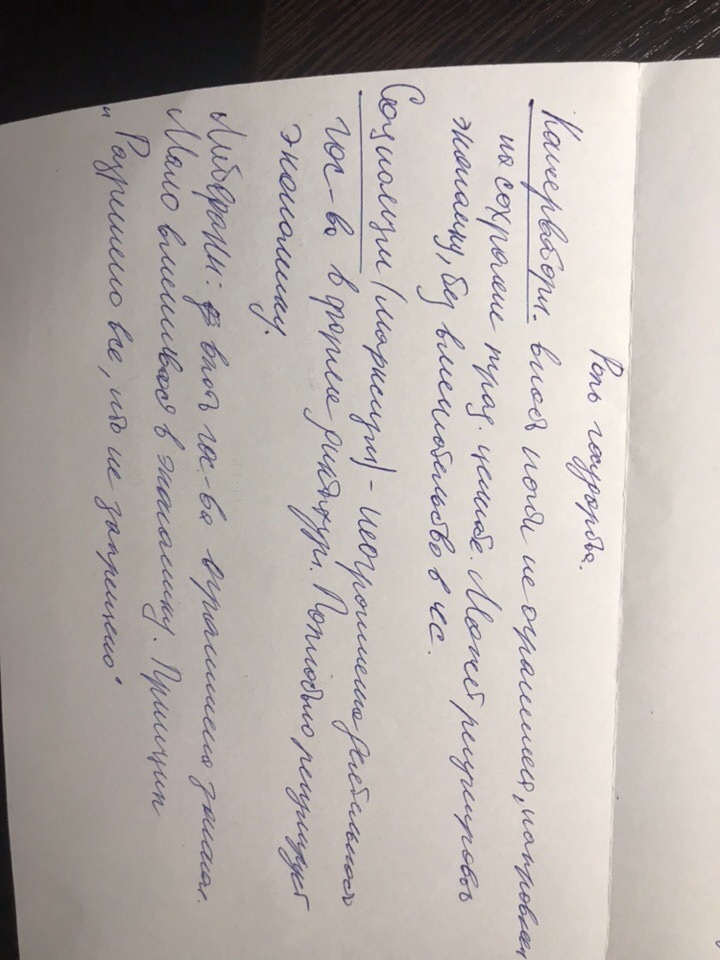 Роль государства.
Консерватизм. власть почти не ограничена, направлена
на сохранение трад. ценносте. Может регулировать
экономику, без вмешательства в чс.
Социализм (марксизм) - неограниченна деятельность
гос-ва в форме диктатур. Полностью регулирует
экономику.
Либерализм: власть гос-ва ограничена законом.
Мало вмешивается в экономику. Принцип
"Разрешено все, что не запрещено"